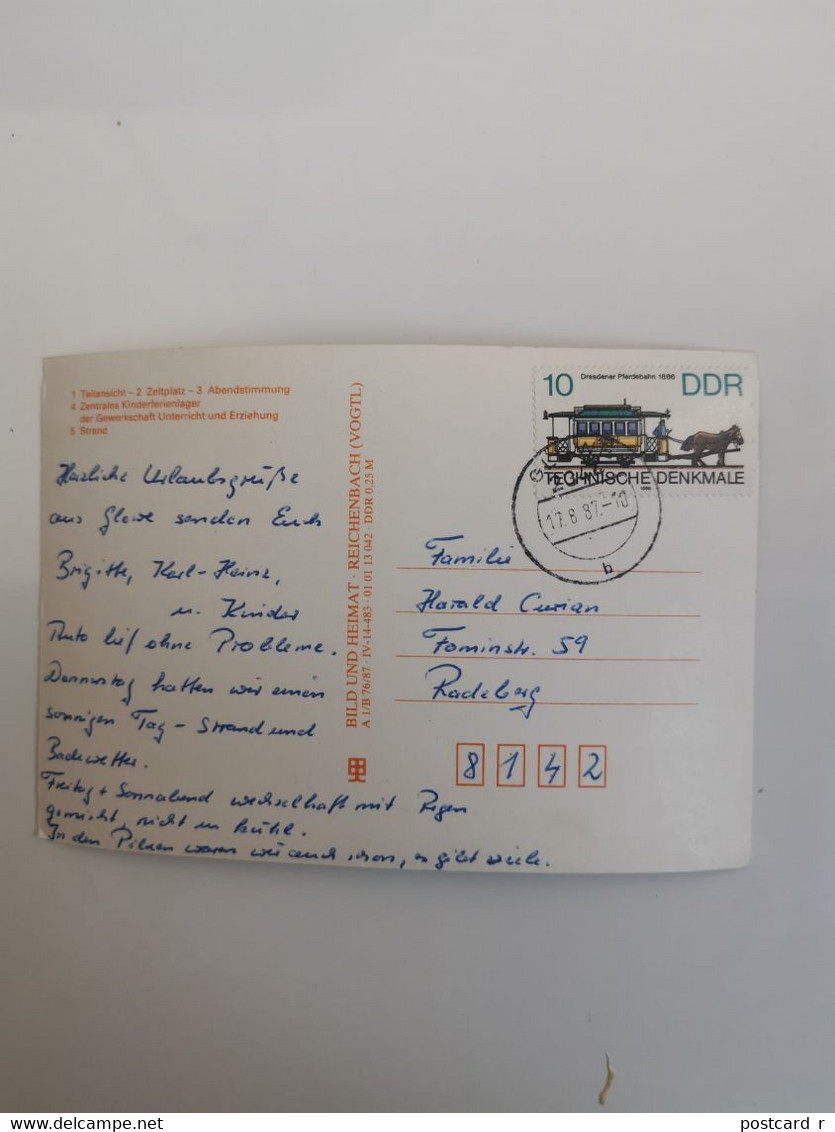 1 Teilansicht – 2 Zeltplatz – 3 Abendstimmung
4 Zentrales Kinderferienlager
der Gewerkschaft Unterricht und Erziehung
5 Strand
Herzliche Urlaubsgrüße
aus Glowe senden Euch
Brigitte, Karl-Heinz,
u. Kinder
Auto lief ohne Probleme.
Donnerstag hatten wir einen
sonnigen Tag – Strand und
Badewetter.
Freitag + Sonnabend wechselhaft mit Regen
gemischt, nicht zu kühl.
In den Pilzen waren wir auch schon, es gibt viele.
BILD UND HEIMAT · REICHENBACH (VOGTL)
A 1/B 76/87 · IV-14-483 · 01 01 13 042 · DDR 0,25 M
10 Dresdener Pferdebahn 1886 DDR
TECHNISCHE DENKMALE
17.8.87.-10
b
Familie
Harald Curian
Str. 59
Radeberg
8142
www.delcampe.net
postcard_r